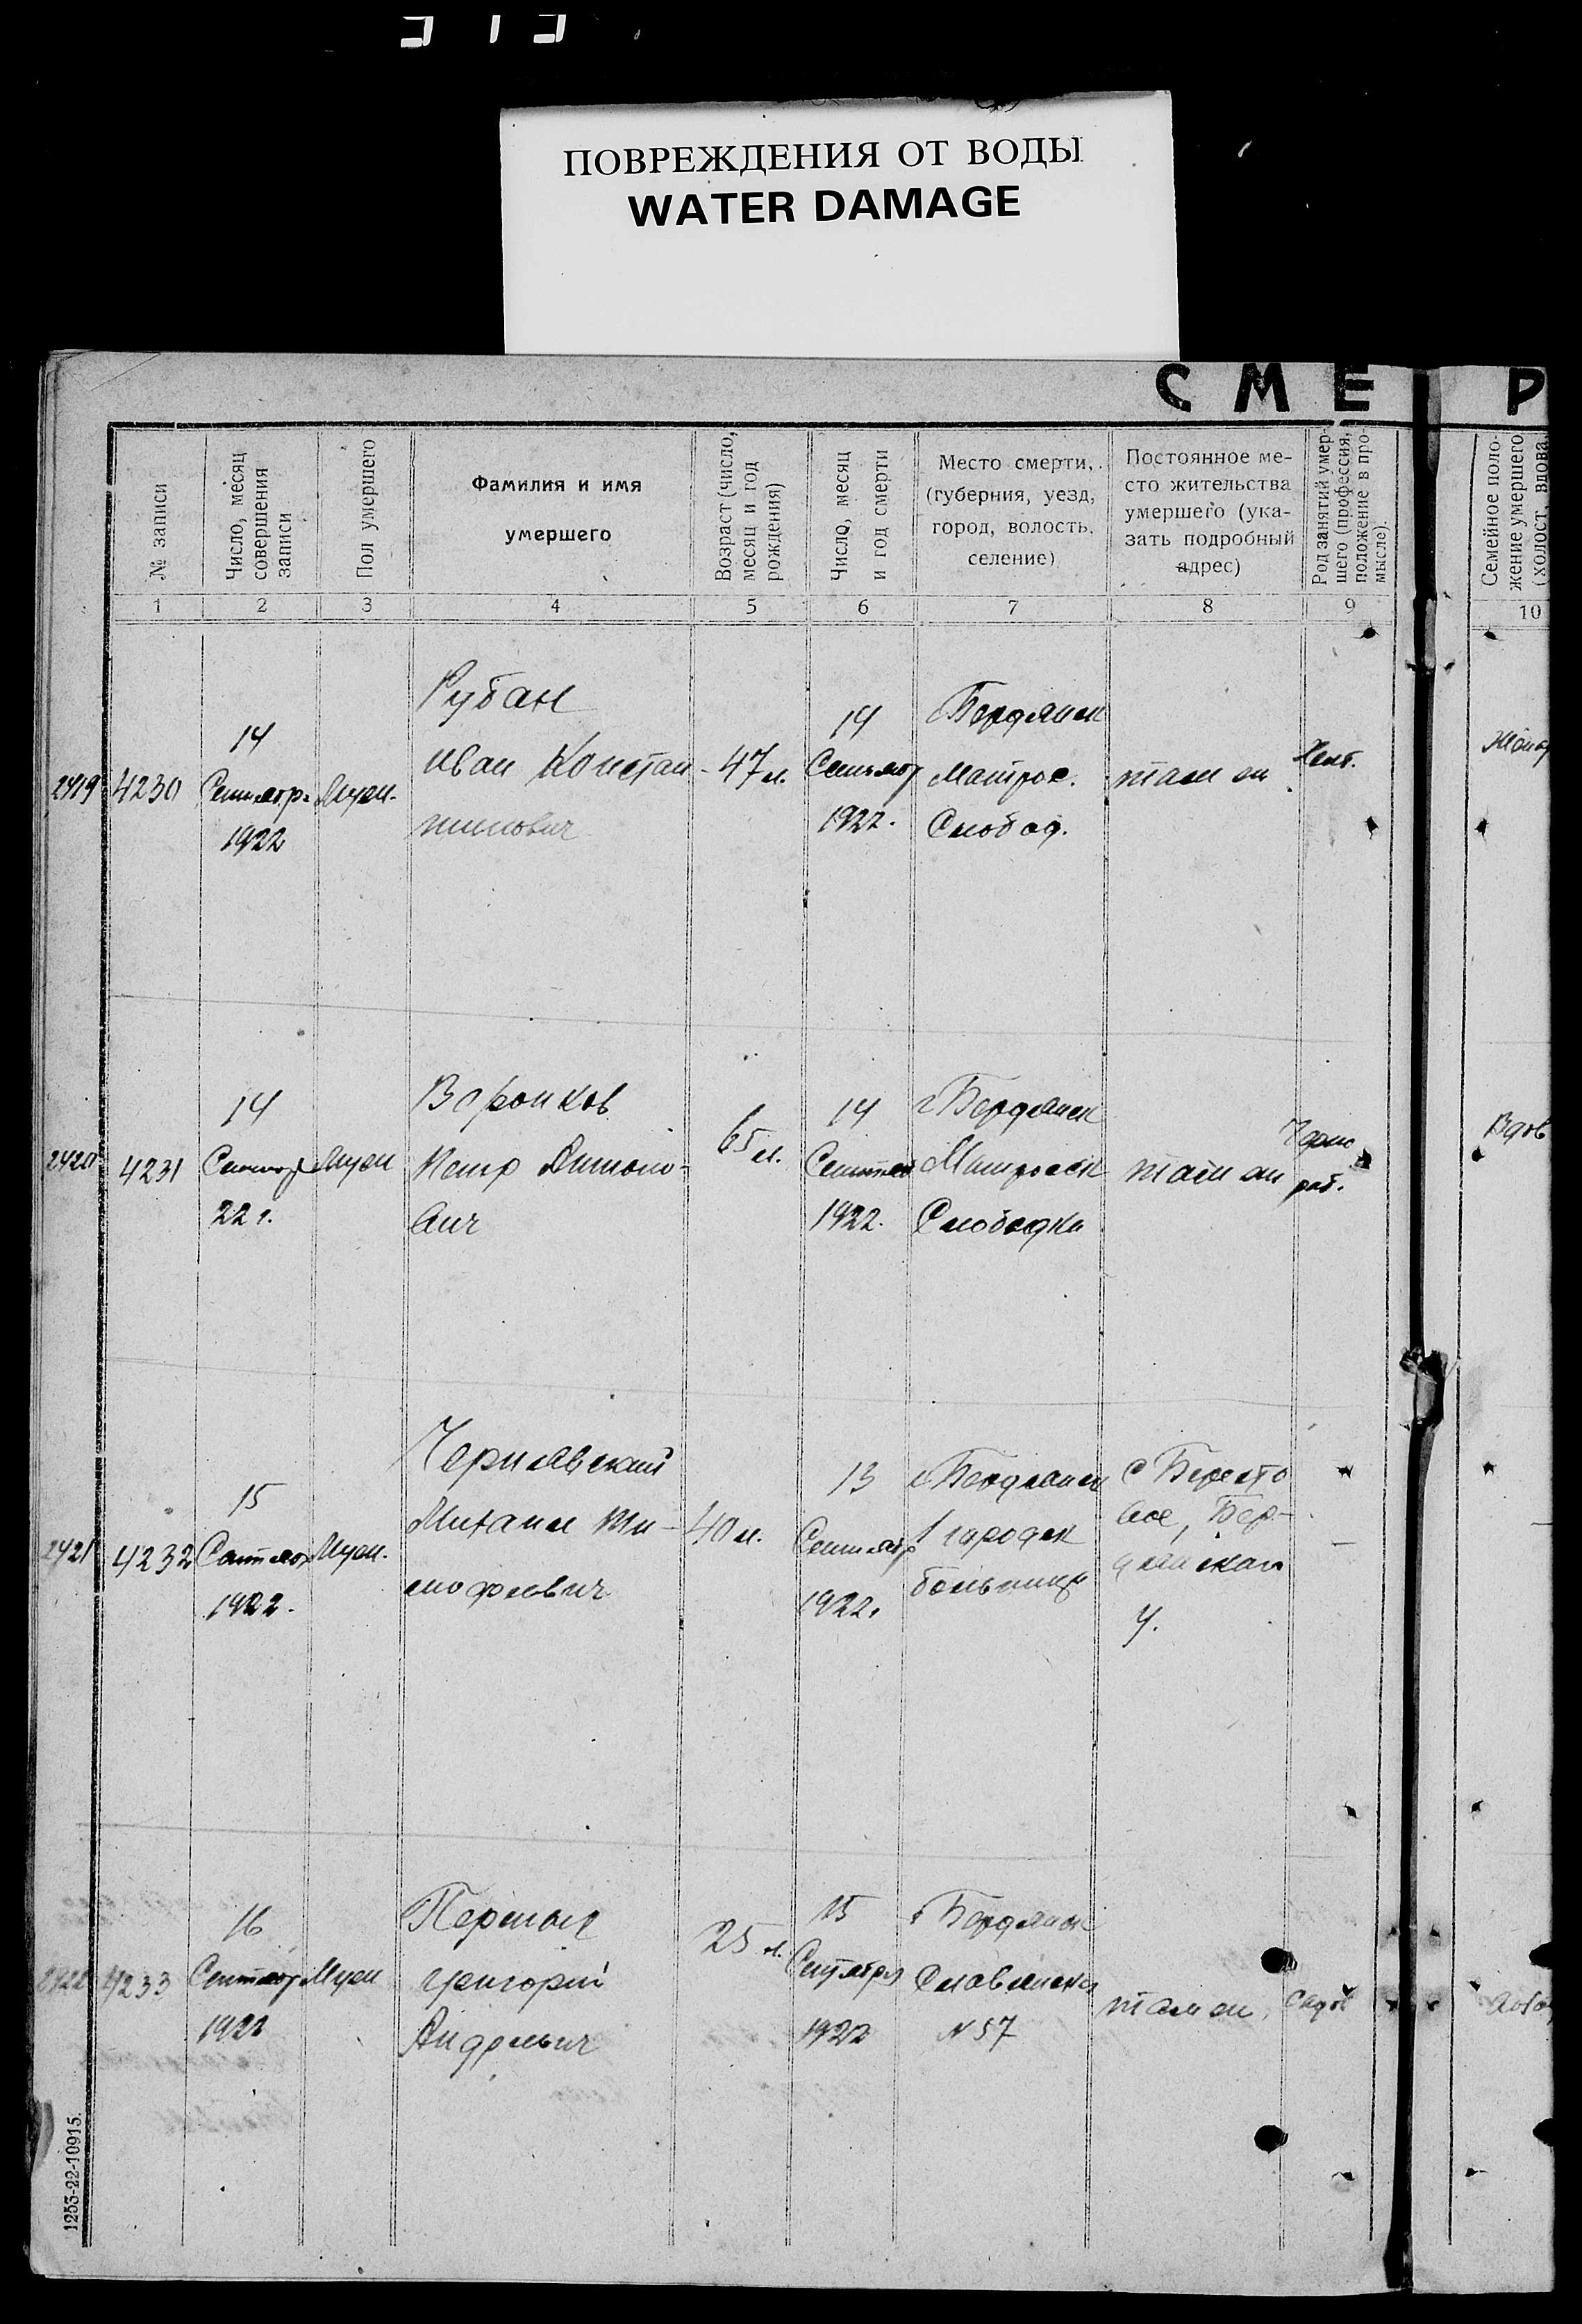 ПОВРЕЖДЕНИЯ ОТ ВОДЫ
WATER DAMAGE
СМЕ Р
№ записи
Число, месяц
совершения
записи
Пол умершего
Фамилия и имя
умершего
Возраст (число,
месяц и год
рождения)
Число, месяц
и год смерти
Место смерти,
(губерния, уезд,
город, волость,
селение)
Постоянное ме-
сто жительства
умершего (ука-
зать подробный
адрес)
Род занятий умер-
шего (профессия,
положение в про-
мысле).
Семейное поло-
жение умершего
(холост, вдова,
1 2 3 4 5 6 7 8 9 10
2419
4230
14
1922
Рубан
Иван Констан-
тинович
47 л.
14
1922.
Бердянск
Матрос.
Слобод.
там жи
2420
4231
14
22 г.
Воронков
Петр Антоно-
вич
65 л.
14
1922.
г Бердянск
Матросск
Слободка
там жи
раб.
Вдов
2421
4232
15
1922.
Чернявский
Михаил Ти-
мофеевич
40 л.
13
1922.
г Бердянск
1 городск
больница
с Бересто
вое, Бер-
дянского
у.
—
2422
4233
16
1922
Григорий
Андреевич
25 л.
15
Сентября
1922
г Бердянск
Славянская
N 57
там жи
1253-22-10915.